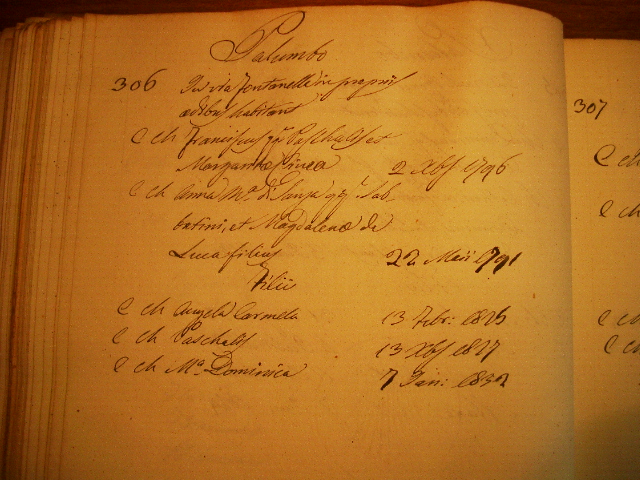 Palumbo
306 In via Fontanelle in propriis
aedibus habitant
C Ch Franciscus qm Paschalis et
Margarita 2 Xbris 1796
C Ch Anna Ma. di qm Sab-
batini, et Magdalena de
Luca filius 22 Maii 1791
Filii
C Ch Angela Carmela 13 Febr: 1825
C Ch Paschalis 13 Xbris 1827
C Ch Ma. Dominica 7 Jan: 1832
307
C Ch
C Ch
C Ch
C Ch